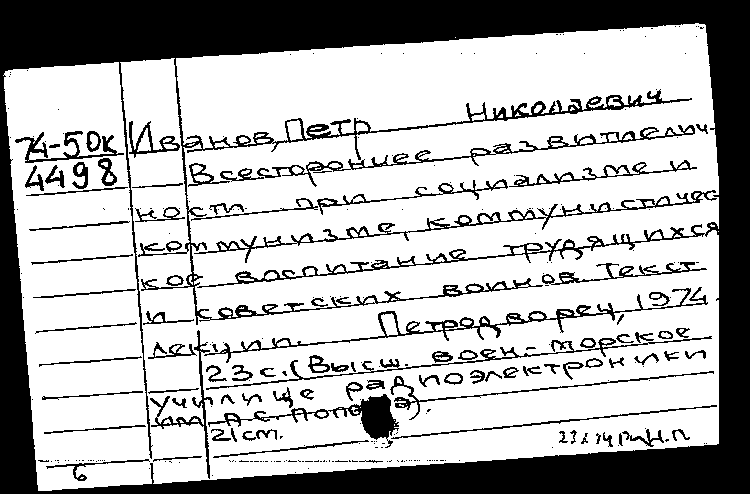 74-50к
4498
Иванов, Петр Николаевич
Всестороннее развитие лич-
ности при социализме и
коммунизме, коммунистичес
кое воспитание трудящихся
и советских воинов. Текст
лекции. Петродворец, 1974.
23 с. (Высш. воен.-морское
училище радиоэлектроники
им. А.С. Попова).
21 см.
6